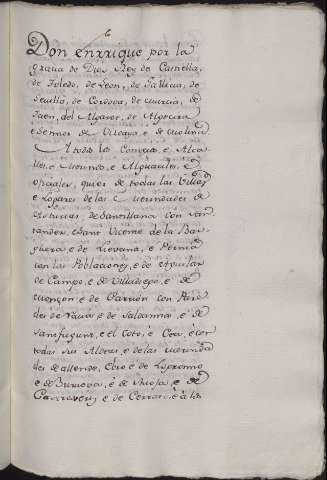 Don enrrique por la
gracia de Dios Rey de Castiella,
de Toledo, de Leon, de Gallicia, de
Sevilla, de Cordova, de Murcia, de
Jaen, del Algarve, de Algecira
e Sennor de Vizcaya, e de Molina
A todos los Concejos e Alcal
des, e Merinos, e Alguaciles, e
oficiales, quier de todas las Villas
e Logares de las Merindades de
Asturias de Santillana con San
tander, e Sant Vicente de la Bar
quera, e de Lievana, e Pernia
con las Poblaciones, e de Aguilar
de Campo, e de Villadiego, e de
Monçon e de Carrion con
de Saldanna, e de
Santfagunt, e el Coto, e Cea, e con
todas sus Aldeas, e de las Merinda
des de allende, Ebro e de Logronno
e de Burueva, e de Rioja, e de
e de Cerrato, e a los